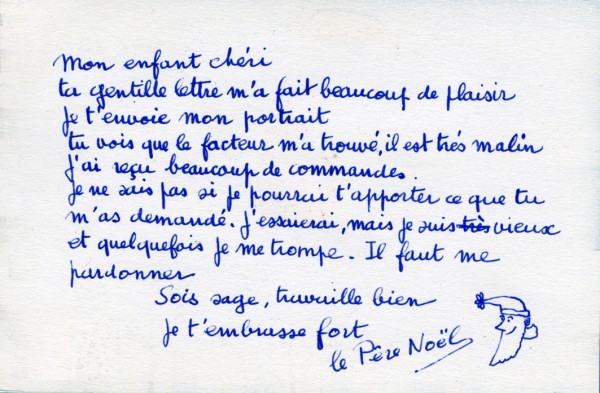 Mon enfant chéri
ta gentille lettre m'a fait beaucoup de plaisir
Je t'envoie mon portrait
tu vois que le facteur m'a trouvé, il est trés malin
J'ai reçu beaucoup de commandes.
Je ne sais pas si je pourrai t'apporter ce que tu
m'as demandé. J'essaierai, mais je suis très vieux
et quelquefois je me trompe. Il faut me
pardonner
Sois sage, travaille bien
Je t'embrasse fort
le Père Noël